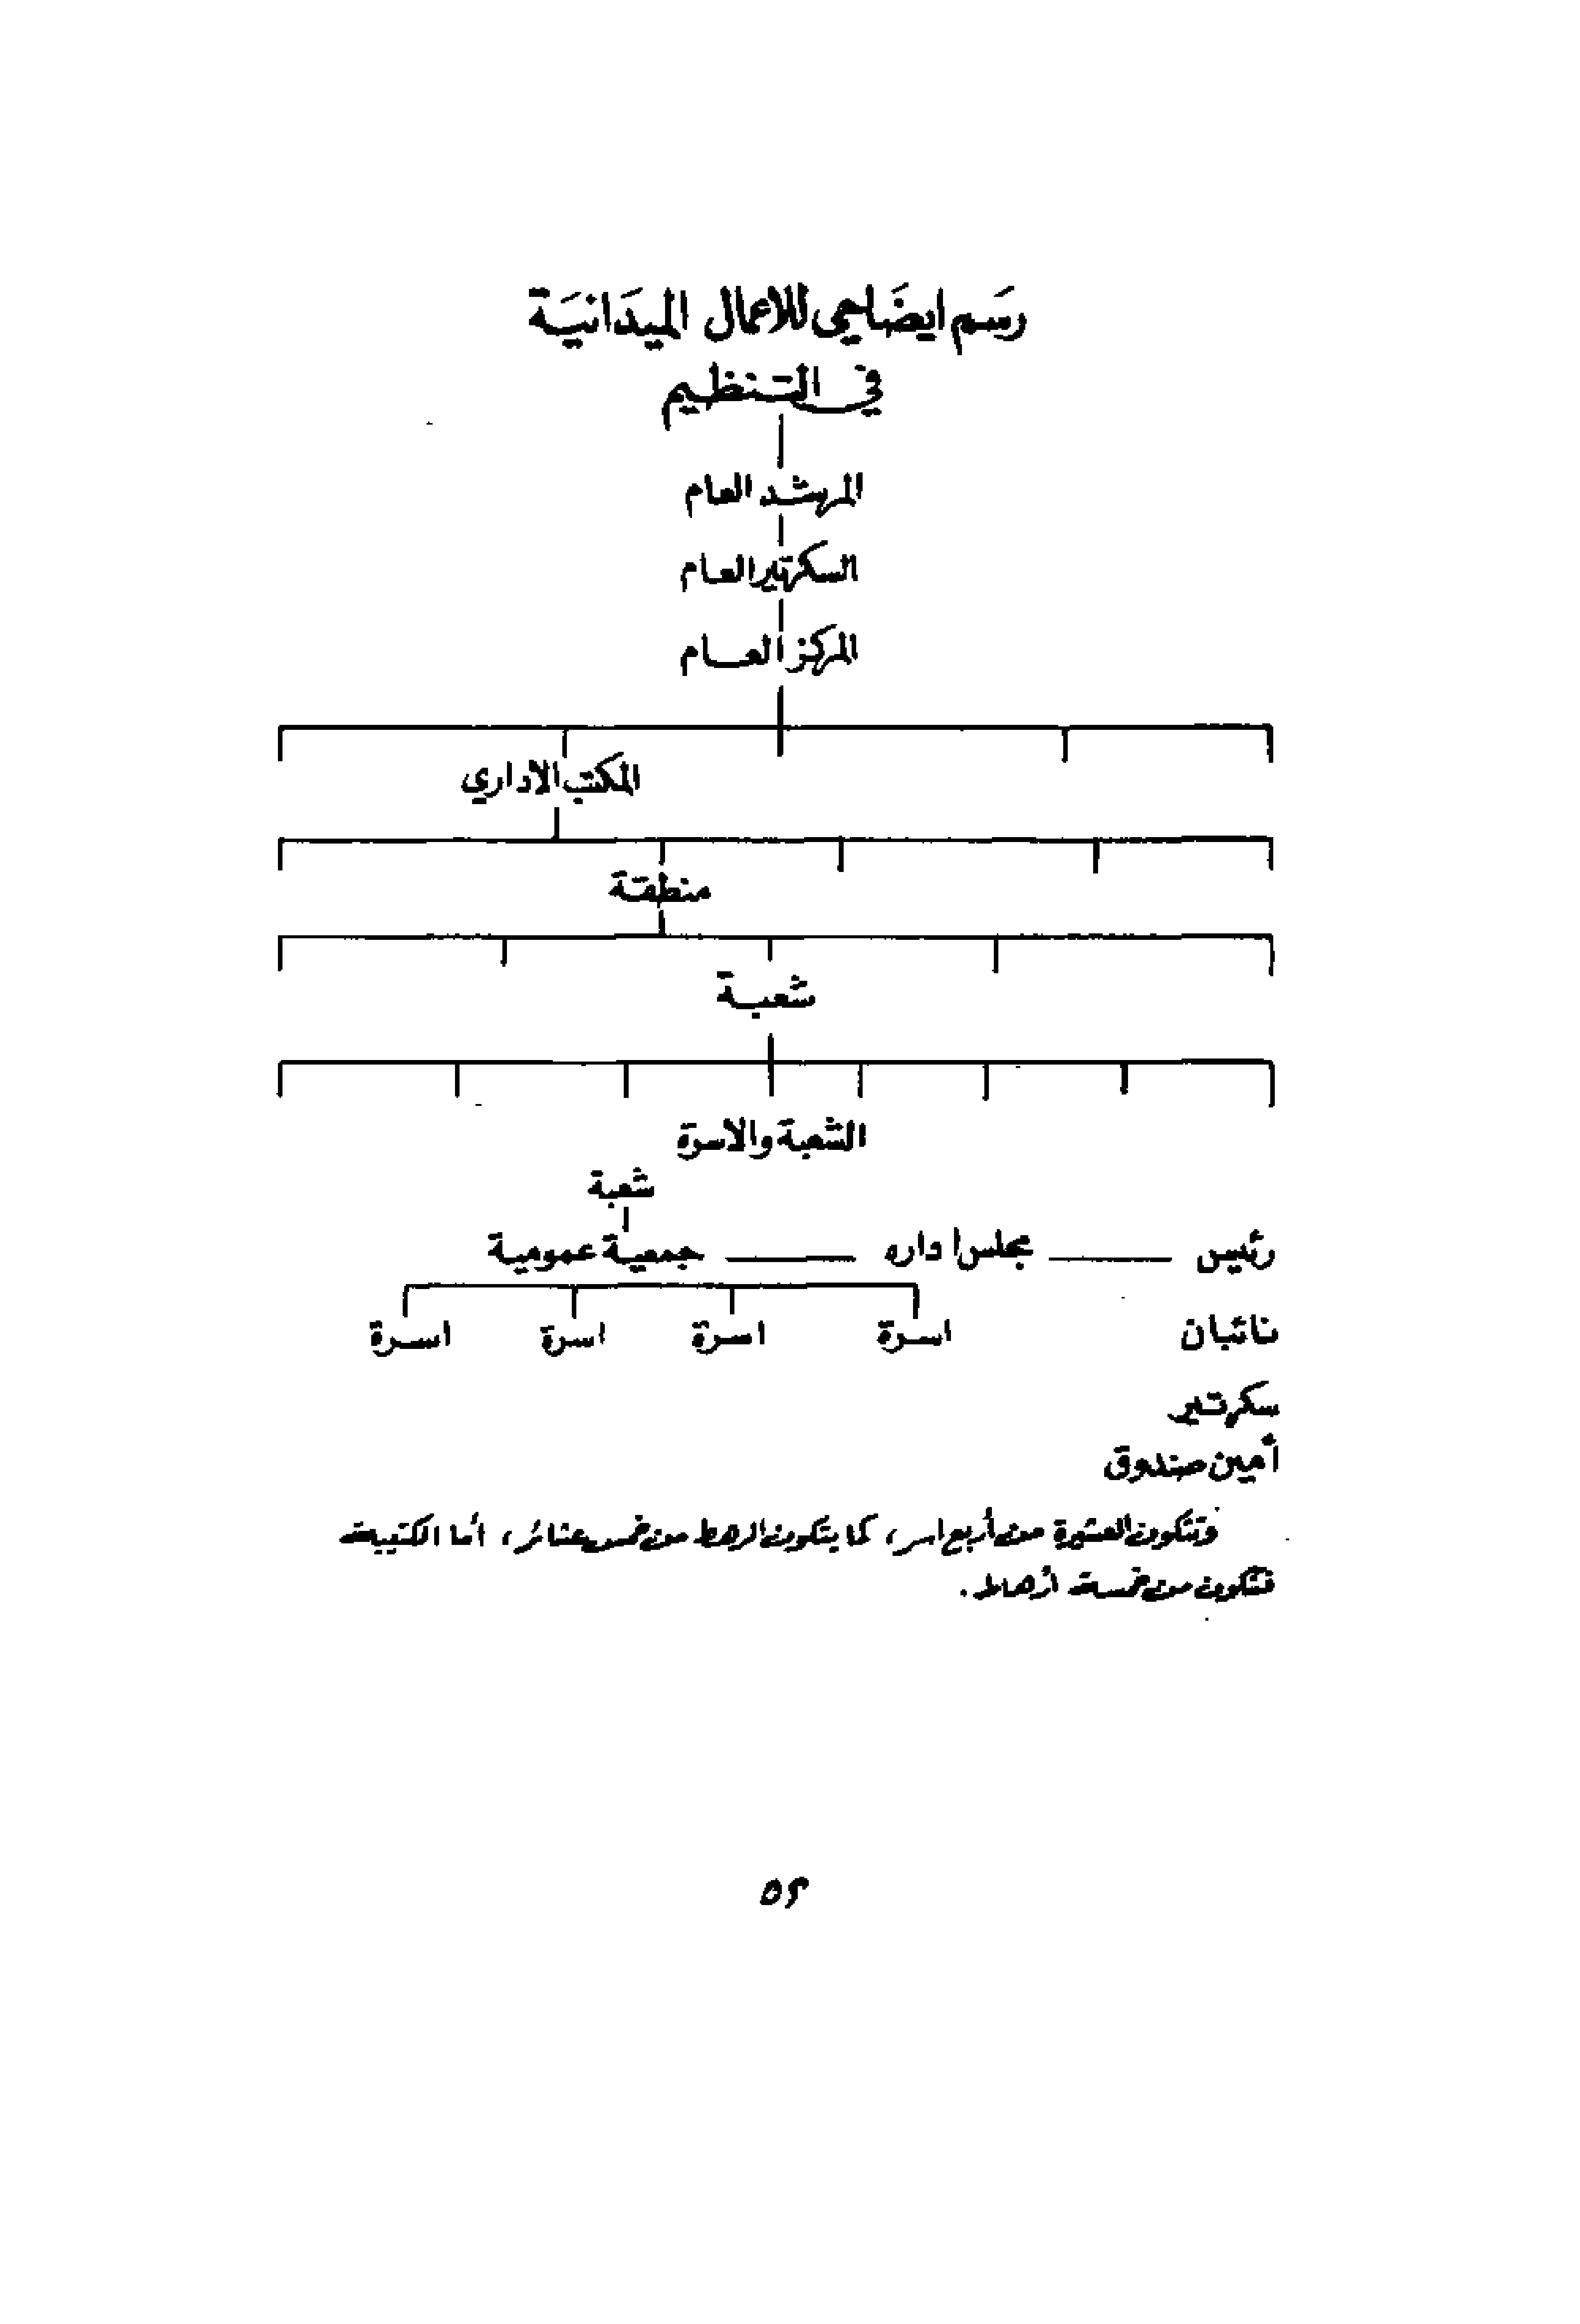 رسَم ايضَاحي للاعمال الميدَانيَة
في التنظيم
المرشد العام
السكرتير العام
المركز العام
المكتب الاداري
منطقة
شعبة
الشعبة والاسرة
شعبة
رئيس مجلس اداره جمعية عمومية
نائبان اسرة اسرة اسرة اسرة
سكرتير
أمين صندوق
وتتكون العشيرة من أربع اسر، كما يتكون الرهط من خمس عشائر، أما الكتيبة
فتتكون من خمسة أرهاط.
٥٩